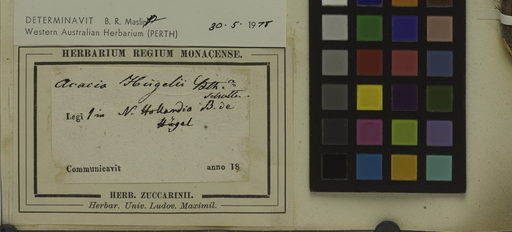 DETERMINAVIT B. R. Maslin 30-5-1978
Western Australian Herbarium (PERTH)
HERBARIUM REGIUM MONACENSE.
Acacia Hügelii Bth.
Legi in N. Hollandia B. de
Hügel
Communicavit anno 18
HERB. ZUCCARINII.
Herbar. Univ. Ludov. Maximil.